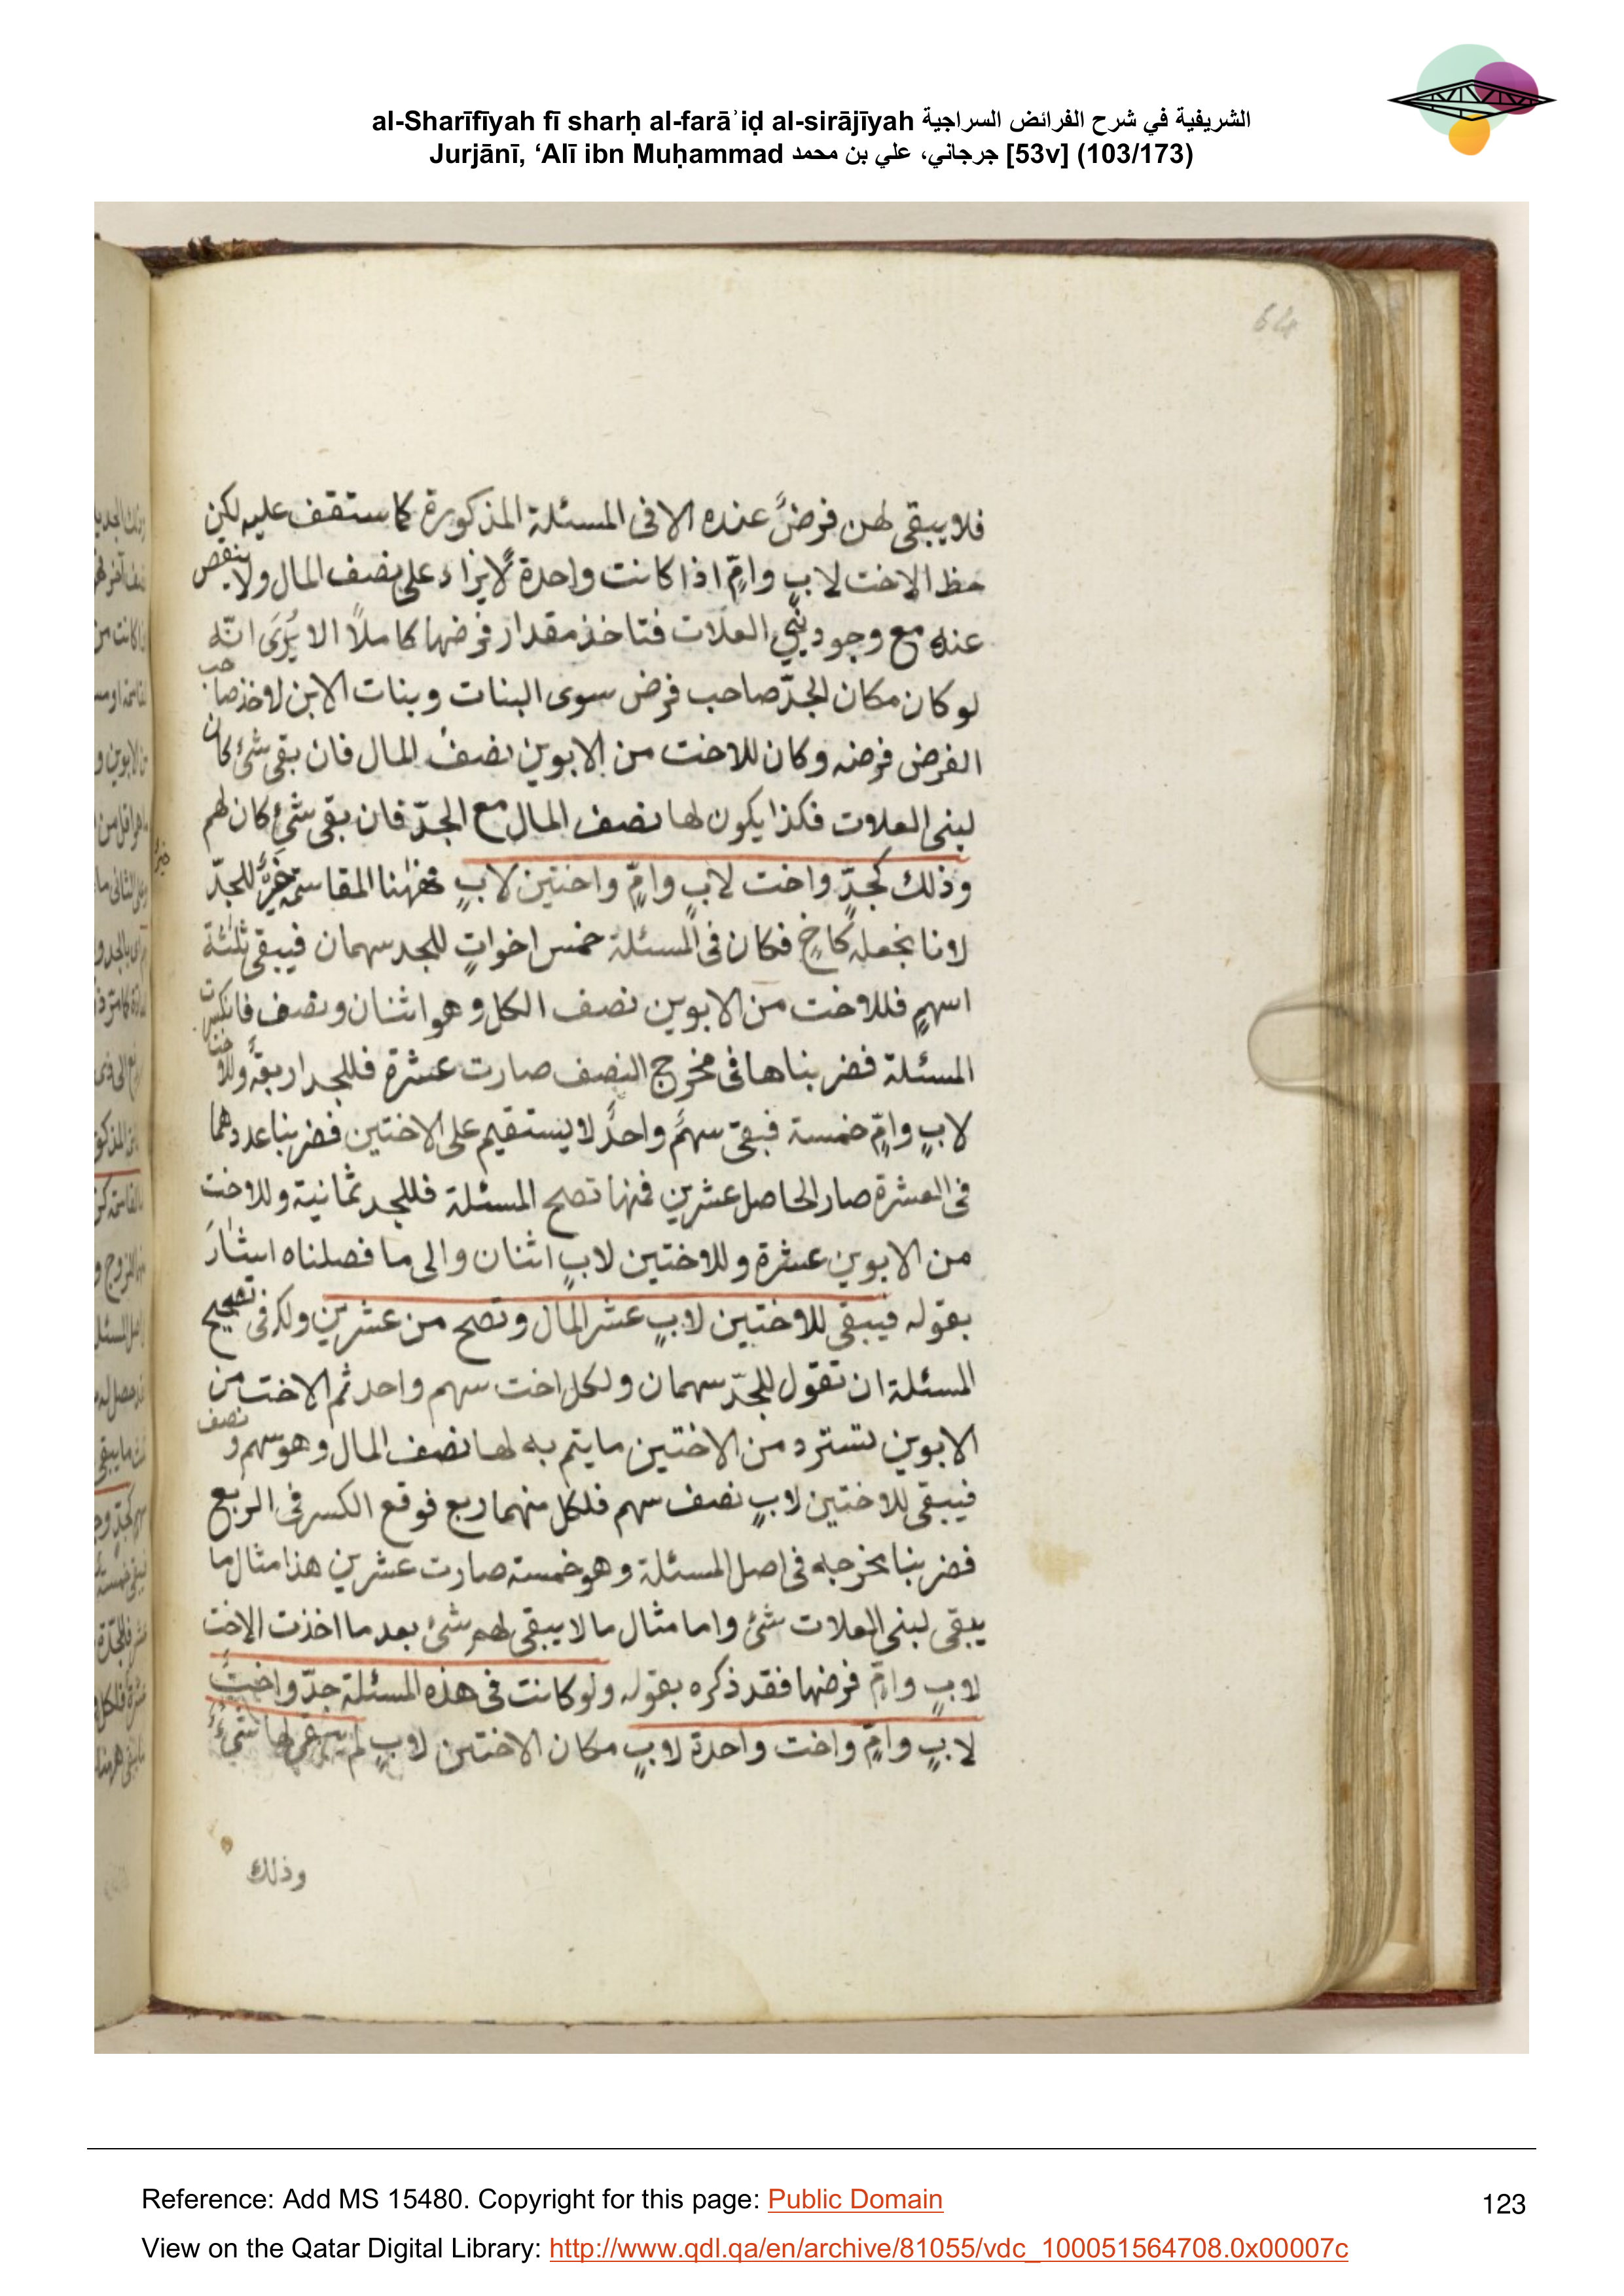 al-Sharīfīyah fī sharḥ al-farāʾiḍ al-sirājīyah الشريفية في شرح الفرائض السراجية
Jurjānī, ‘Alī ibn Muḥammad جرجاني، علي بن محمد [53v] (103/173)
64
فلا يبقى لهن فرضٌ عنده الا فى المسئلة المذكورة كما ستقف عليه لكن
حظ الاخت لابٍ وامٍّ اذا كانت واحدة لا يزاد على نصف المال ولا ينقص
عنه مع وجود بني العلات فتاخذ مقدار فرضها كاملاً الا يُرَى انّه
لو كان مكان الجدّ صاحب فرض سوى البنات وبنات الابن لاخذ صاحب
الفرض فرضه وكان للاخت من الابوين نصفُ المال فان بقى شئ كان
لبنى العلات فكذا يكون لها نصف المال مع الجدّ فان بقى شئ كان لهم
وذلك كجدٍّ واخت لابٍ وامٍّ واختين لابٍ فههنا المقاسمة خيرٌ للجدّ
لانا نجعله كاخٍ فكان فى المسئلة خمس اخواتٍ للجد سهمان فيبقى ثلثة
اسهمٍ فللاخت من الابوين نصف الكل وهو اثنان ونصف فانكسرت
المسئلة فضربناها فى مخرج النصف صارت عشرة فللجد اربعةٌ وللاخت
لابٍ وامٍّ خمسة فبقى سهمٌ واحدٌ لا يستقيم على الاختين فضربنا عددهما
فى العشرة صار الحاصل عشرين فمنها تصح المسئلة فللجد ثمانية وللاخت
من الابوين عشرة وللاختين لابٍ اثنان والى ما فصلناه اشارَ
بقوله فيبقى للاختين لابٍ عشر المال وتصح من عشرين ولك فى تصحيح
المسئلة ان تقول للجدّ سهمان ولكل اخت سهم واحد ثم الاخت من
الابوين تسترد من الاختين ما يتم به لها نصف المال وهو سهم ونصف
فيبقى للاختين لابٍ نصف سهم فلكل منهما ربع فوقع الكسر فى الربع
فضربنا مخرجه فى اصل المسئلة وهو خمسة صارت عشرين هذا مثال ما
يبقى لبنى العلات شئ واما مثال ما لا يبقى لهم شئ بعد ما اخذت الاخت
لابٍ وامٍّ فرضها فقد ذكره بقوله ولو كانت فى هذه المسئلة جدّ واختٌ
لابٍ وامٍّ واخت واحدة لابٍ مكان الاختين لابٍ لم يبق لها شئٌ
وذلك
Reference: Add MS 15480. Copyright for this page: Public Domain
123
View on the Qatar Digital Library: http://www.qdl.qa/en/archive/81055/vdc_100051564708.0x00007c